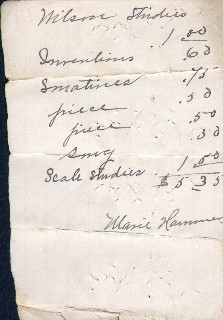 Wilson Studies
1.00
Inventions .60
Sonatines .75
piece .50
piece .50
song .50
Scale Studies 1.50
$5.35
Marie